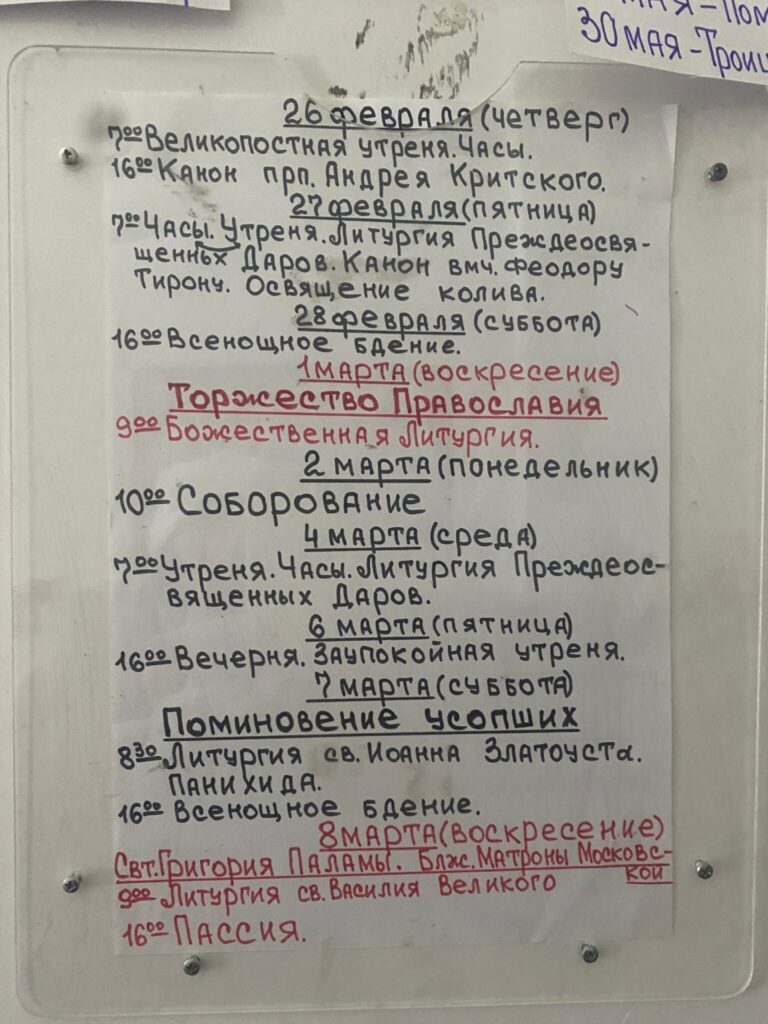 30 МАЯ-Трои
26 февраля (четверг)
7⁰⁰ Великопостная утреня. Часы.
16⁰⁰ Канон прп. Андрея Критского.
27 февраля (пятница)
7⁰⁰ Часы. Утреня. Литургия Преждеосвя-
щенных Даров. Канон вмч. Феодору
Тирону. Освящение колива.
28 февраля (суббота)
16⁰⁰ Всенощное бдение.
1 марта (воскресение)
Торжество Православия
9⁰⁰ Божественная Литургия.
2 марта (понедельник)
10⁰⁰ Соборование
4 марта (среда)
7⁰⁰ Утреня. Часы. Литургия Преждеос-
вященных Даров.
6 марта (пятница)
16⁰⁰ Вечерня. Заупокойная утреня.
7 марта (суббота)
Поминовение усопших
8³⁰ Литургия св. Иоанна Златоуста.
Панихида.
16⁰⁰ Всенощное бдение.
8 марта (воскресение)
Свт. Григория Паламы. Блж. Матроны Московс-
кой
9⁰⁰ Литургия св. Василия Великого
16⁰⁰ Пассия.